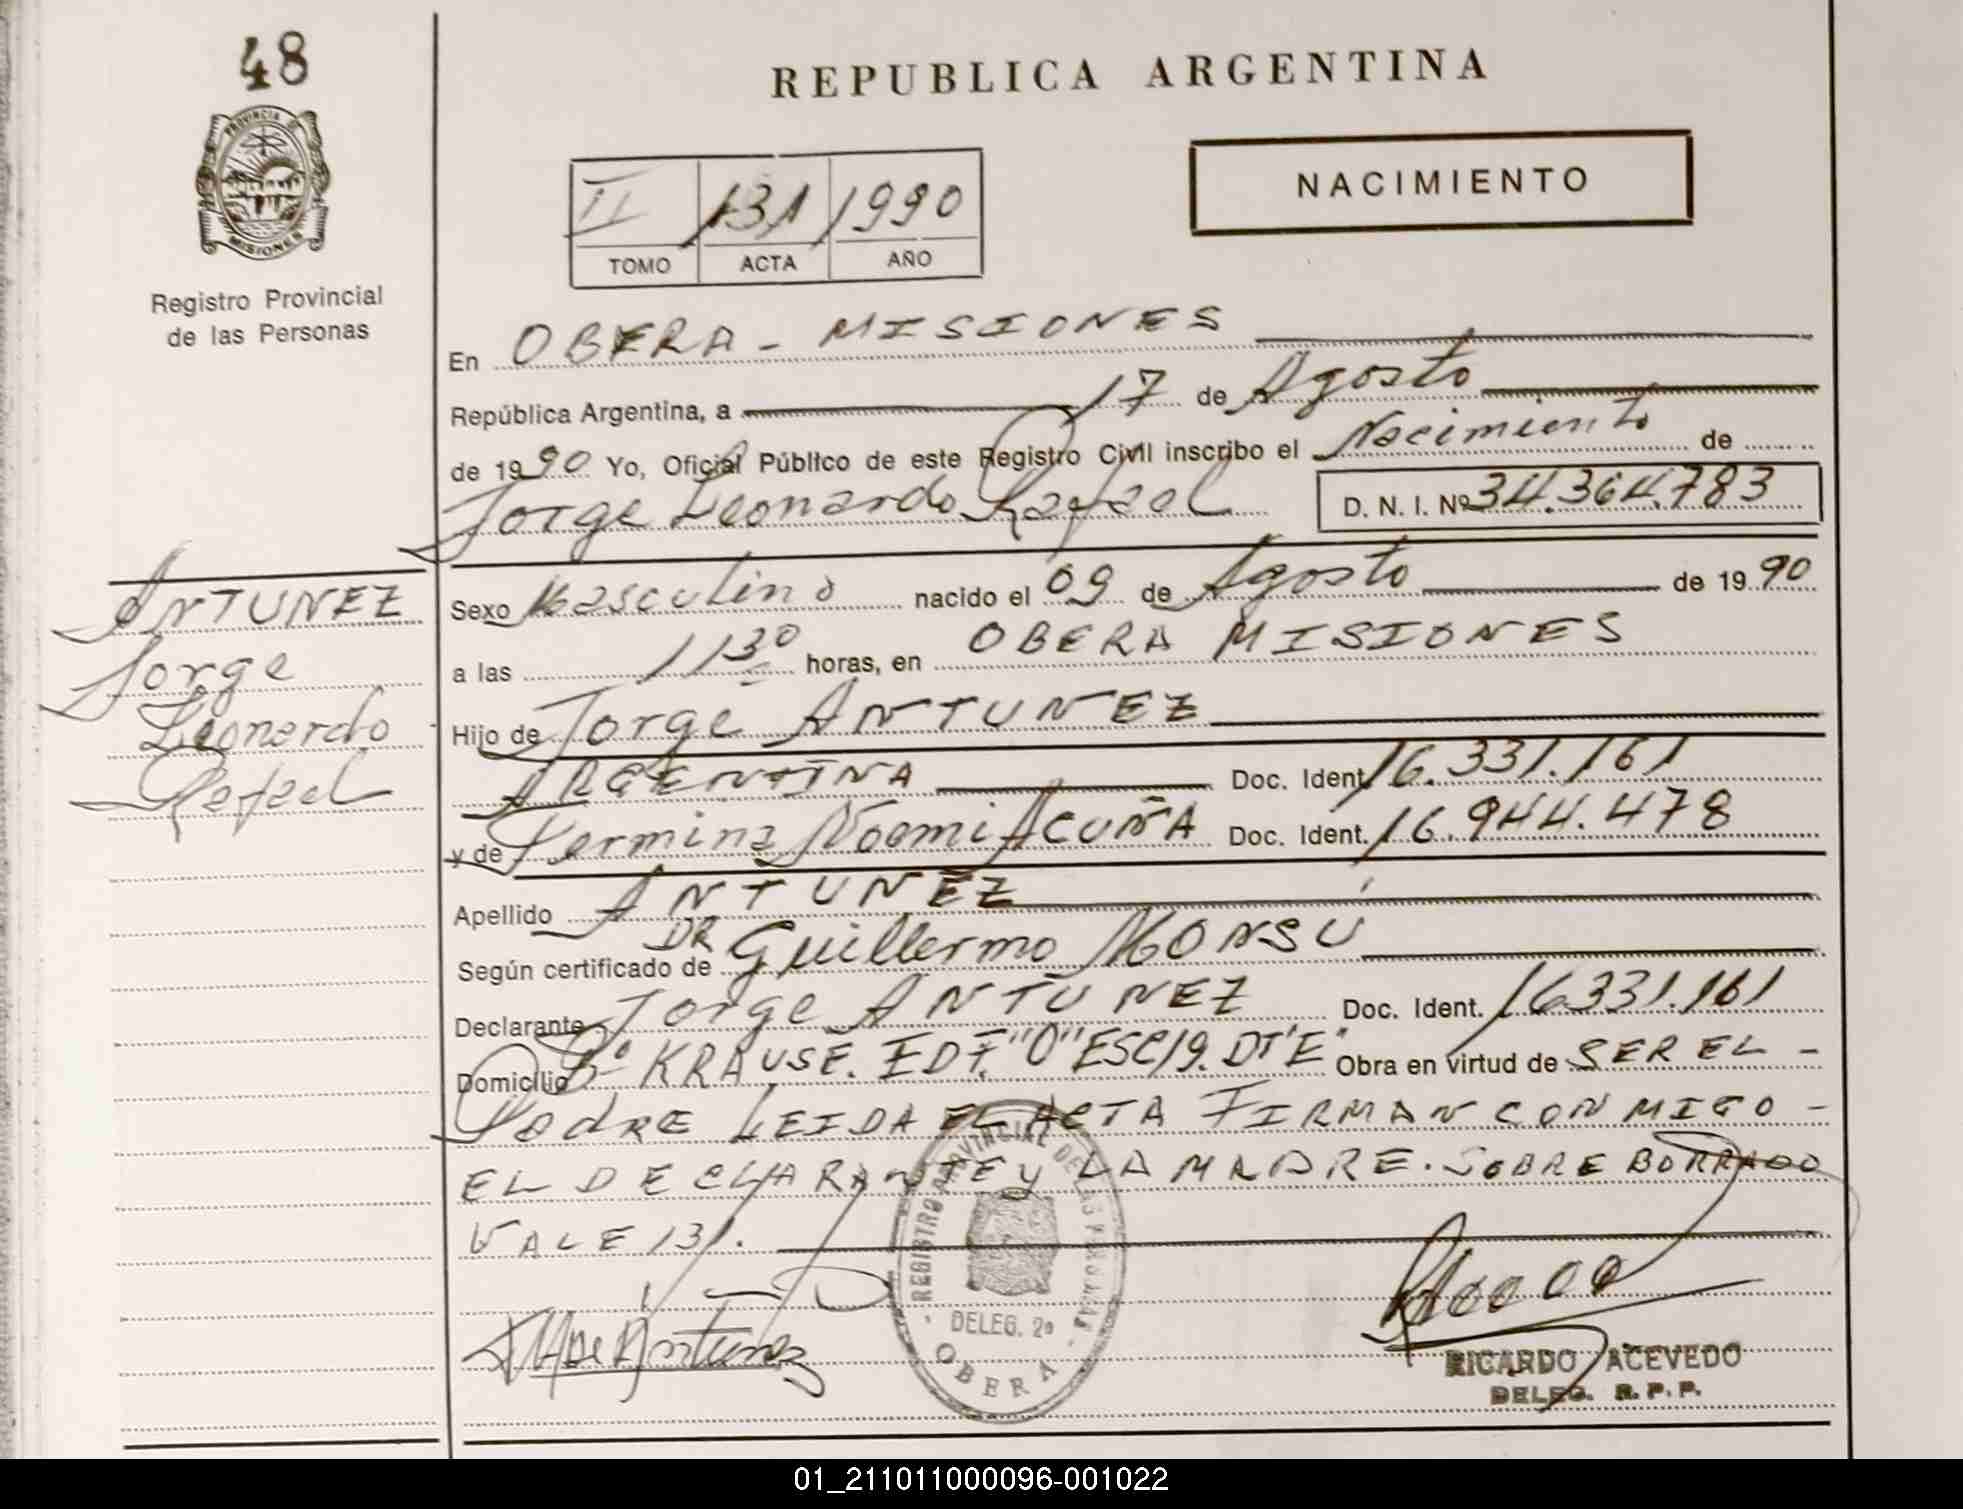 48
PROVINCIA DE
MISIONES
Registro Provincial
de las Personas
REPUBLICA ARGENTINA
NACIMIENTO
II 131 1990
TOMO ACTA AÑO
En OBERA - MISIONES
República Argentina, a 17 de Agosto
de 1990 Yo, Oficial Público de este Registro Civil inscribo el Nacimiento de
Jorge Leonardo Rafael D. N. I. Nº 34.364.783
ANTUNEZ
Jorge
Leonardo
Rafael
Sexo Masculino nacido el 09 de Agosto de 1990
a las 1130 horas, en OBERA MISIONES
Hijo de Jorge ANTUNEZ
ARGENTINA Doc. Ident. 16.331.161
y de Fermina Noemi ACUÑA Doc. Ident. 16.944.478
Apellido ANTUNEZ
Según certificado de DR Guillermo MONSU
Declarante Jorge ANTUNEZ Doc. Ident. 16.331.161
Domicilio Bº KRAUSE. EDF. "O" ESC/9. DT'E" Obra en virtud de SER EL -
PadRE LEIDA EL ACTA FIRMAN CONMIGO -
EL DECLARANTE y LA MADRE. SOBRE BORRADO
VALE 131.
REGISTRO PROVINCIAL DE LAS PERSONAS
DELEG. 2ª
OBERA
RICARDO ACEVEDO
DELEG. R. P. P.
01_211011000096-001022